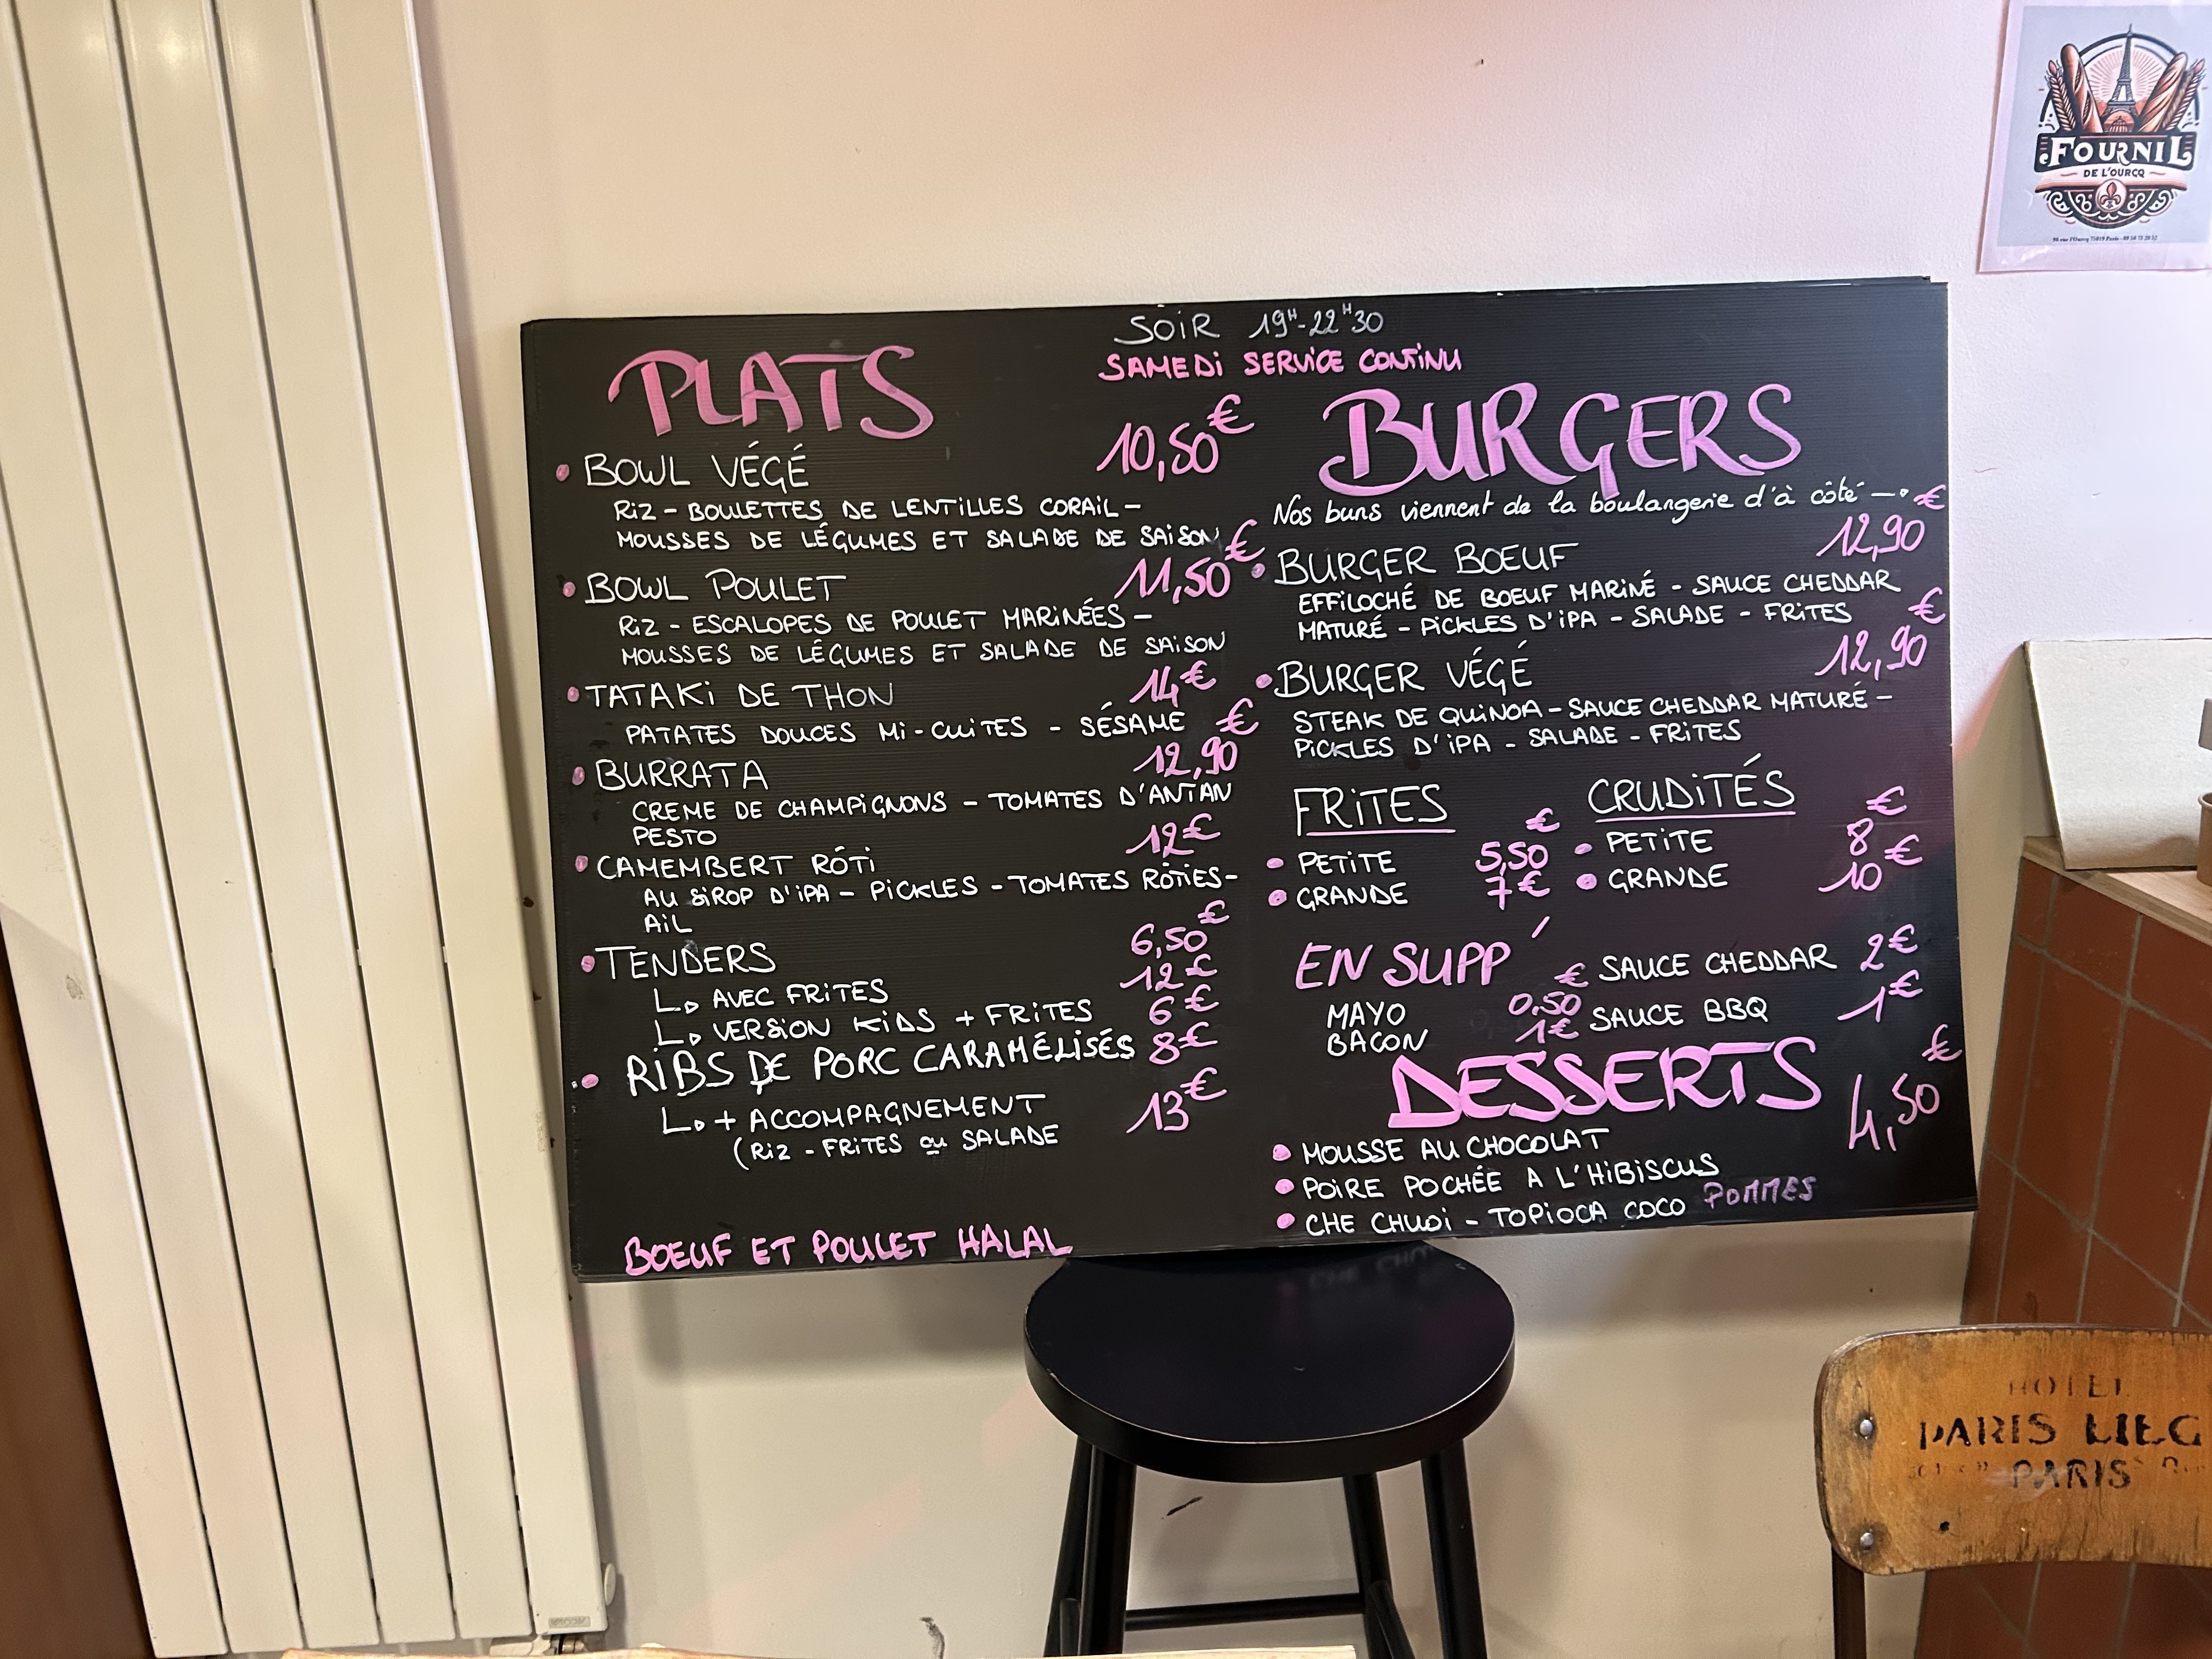 SOIR 19H-22H30
SAMEDI SERVICE CONTINU
PLATS
BOWL VÉGÉ 10,50€
RIZ - BOULETTES DE LENTILLES CORAIL -
MOUSSES DE LÉGUMES ET SALADE DE SAISON
BOWL POULET 11,50€
RIZ - ESCALOPES DE POULET MARINÉES -
MOUSSES DE LÉGUMES ET SALADE DE SAISON
TATAKI DE THON 14€
PATATES DOUCES MI-CUITES - SÉSAME
BURRATA 12,90€
CREME DE CHAMPIGNONS - TOMATES D'ANTAN
PESTO
CAMEMBERT RÔTI 12€
AU SIROP D'IPA - PICKLES - TOMATES RÔTIES -
AIL
TENDERS 6,50€
AVEC FRITES 12€
VERSION KIDS + FRITES 6€
RIBS DE PORC CARAMÉLISÉS 8€
+ ACCOMPAGNEMENT 13€
(RIZ - FRITES ou SALADE
BOEUF ET POULET HALAL
BURGERS
Nos buns viennent de la boulangerie d'à côté
BURGER BOEUF 12,90€
EFFILOCHÉ DE BOEUF MARINÉ - SAUCE CHEDDAR
MATURÉ - PICKLES D'IPA - SALADE - FRITES
BURGER VÉGÉ 12,90€
STEAK DE QUINOA - SAUCE CHEDDAR MATURÉ -
PICKLES D'IPA - SALADE - FRITES
FRITES
PETITE 5,50€
GRANDE 7€
CRUDITÉS
PETITE 8€
GRANDE 10€
EN SUPP'
MAYO 0,50€
BACON 1€
SAUCE CHEDDAR 2€
SAUCE BBQ 1€
DESSERTS 4,50€
MOUSSE AU CHOCOLAT
POIRE POCHÉE A L'HIBISCUS
CHE CHUOI - TOPIOCA COCO POMMES
FOURNIL
DE L'OURCQ
HOTEL
PARIS LIEG
PARIS